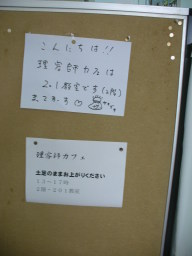 こんにちは!!
理容師カフェは
201教室です(2階)
まってます
理容師カフェ
土足のままお上がりください
10-17時
2階・201教室